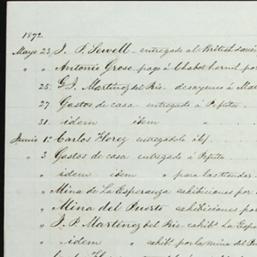 1872
Mayo 23, J. P. Sewell entregado al British
" " Antonio Grose, pago á Chabot hornel, por
" 25, G. J. Martinez del Rio. desayunos á
" 27, Gastos de casa entregado á Pepita
" 31. idem idem "
Junio 1º Carlos Florez entregadole
" 3 Gastos de casa entregado á Pepita
" " idem idem " para las tiendas
" " Mina de La Esperanza exhibiciones por
" " Mina del Puerto exhibiciones por
" " J. P. Martinez del Rio exhibn. La
" " idem " exhibn. por la mina del